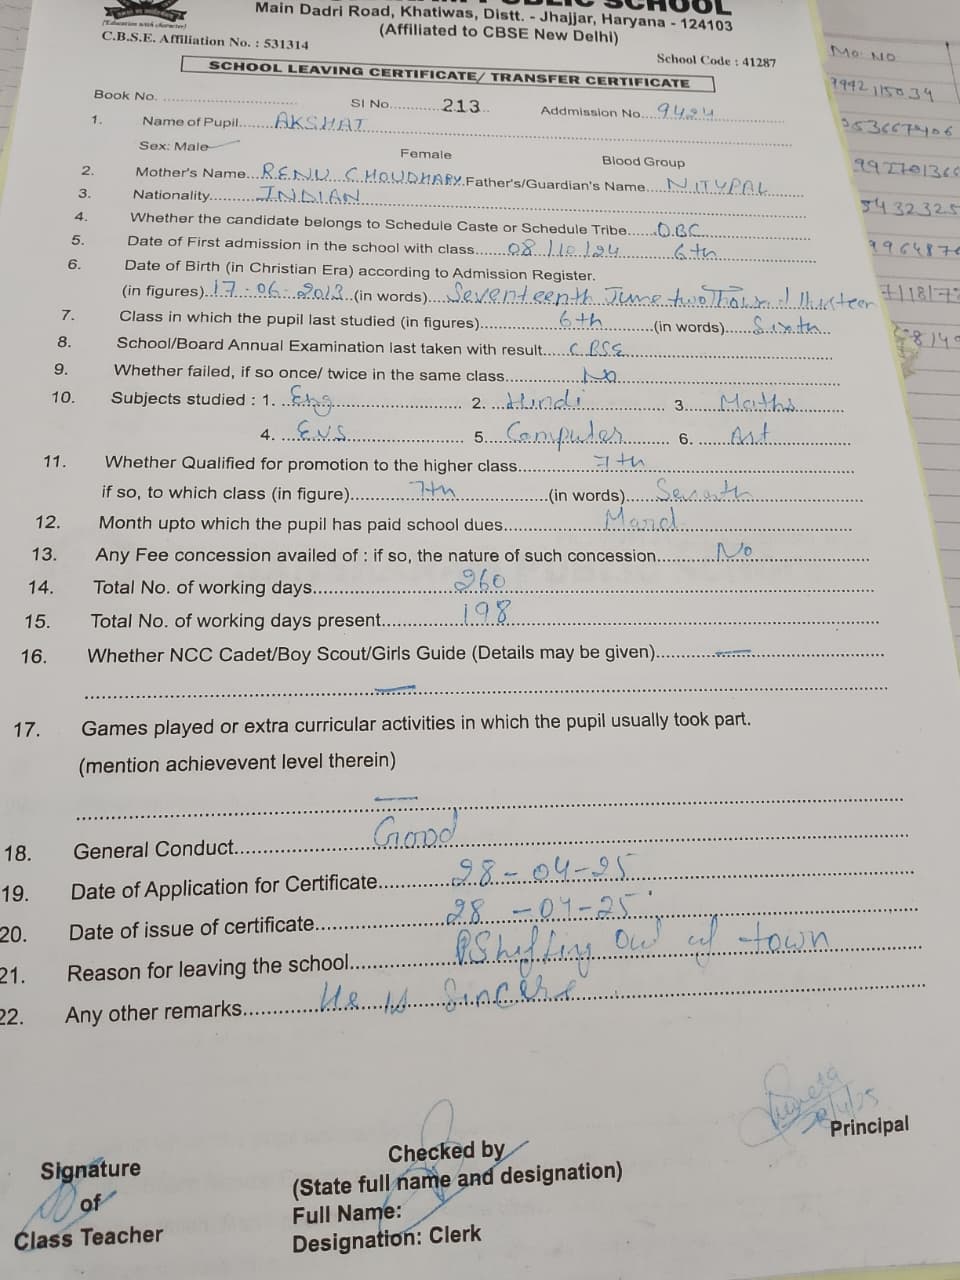 PUBLIC SCHOOL
Main Dadri Road, Khatiwas, Distt. - Jhajjar, Haryana - 124103
(Affiliated to CBSE New Delhi)
(Education with character)
C.B.S.E. Affiliation No. : 531314
School Code : 41287
SCHOOL LEAVING CERTIFICATE/ TRANSFER CERTIFICATE
Book No. .......... SI No.......... 213 Addmission No.... 9424
1. Name of Pupil....... AKSHAT
Sex: Male Female Blood Group
2. Mother's Name... RENU CHOUDHARY Father's/Guardian's Name.... NITYPAL
3. Nationality.......... INDIAN
4. Whether the candidate belongs to Schedule Caste or Schedule Tribe..... OBC
5. Date of First admission in the school with class...... 08/10/24 6th
6. Date of Birth (in Christian Era) according to Admission Register.
(in figures).. 17-06-2013 (in words).... Seventeenth June two Thousand thirteen
7. Class in which the pupil last studied (in figures).......... 6th (in words)..... Sixth
8. School/Board Annual Examination last taken with result.... CBSE
9. Whether failed, if so once/ twice in the same class.......... No
10. Subjects studied : 1. Eng 2. Hindi 3. Maths
4. E.V.S 5. Computer 6. Art
11. Whether Qualified for promotion to the higher class.......... 7th
if so, to which class (in figure).......... 7th (in words)..... Seventh
12. Month upto which the pupil has paid school dues..........
13. Any Fee concession availed of : if so, the nature of such concession.......... No
14. Total No. of working days.......... 260
15. Total No. of working days present.......... 198
16. Whether NCC Cadet/Boy Scout/Girls Guide (Details may be given).......... —
—
17. Games played or extra curricular activities in which the pupil usually took part.
(mention achievevent level therein)
—
18. General Conduct.......... Good
19. Date of Application for Certificate.......... 28-04-25
20. Date of issue of certificate.......... 28-04-25
21. Reason for leaving the school.......... Shifting out of town
22. Any other remarks.......... He is Sincere
Signature
of
Class Teacher
Checked by
(State full name and designation)
Full Name:
Designation: Clerk
28/4/25
Principal
Mo. NO